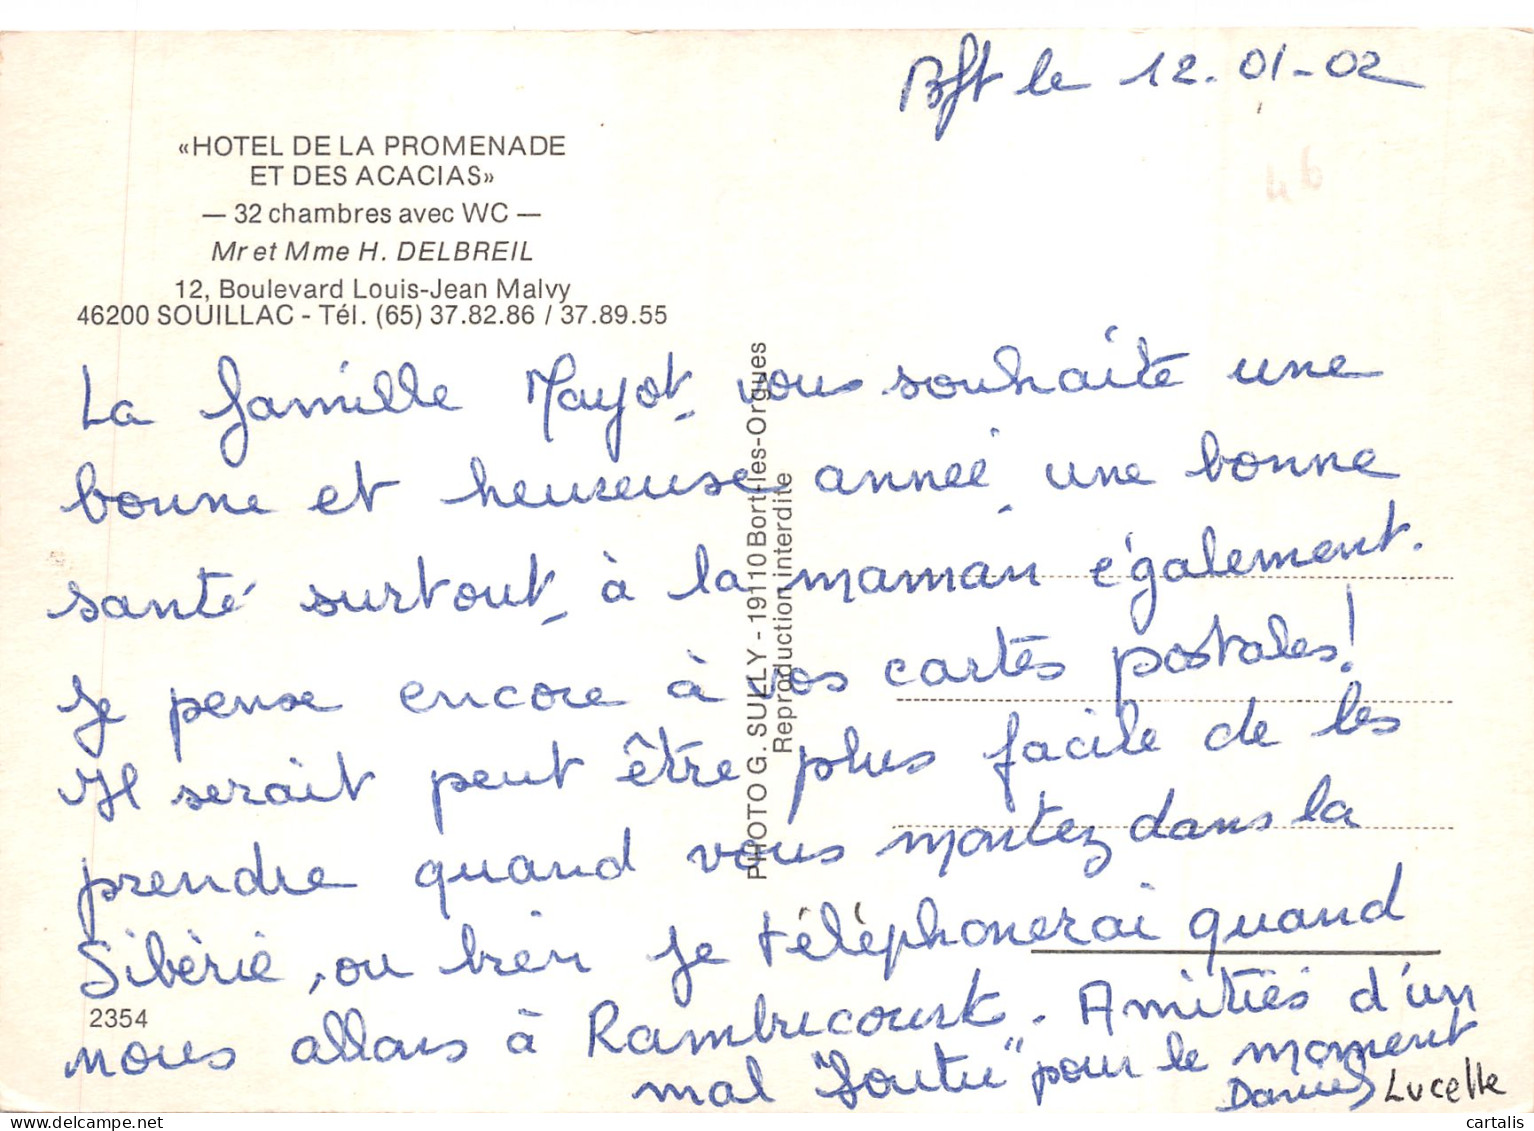 Bft le 12-01-02
46
«HOTEL DE LA PROMENADE
ET DES ACACIAS»
— 32 chambres avec WC —
Mr et Mme H. DELBREIL
12, Boulevard Louis-Jean Malvy
46200 SOUILLAC - Tél. (65) 37.82.86 / 37.89.55
La famille Mayot, vous souhaite une
bonne et heureuse année, une bonne
santé surtout, à la maman également.
Je pense encore à vos cartes postales!
Il serait peut être plus facile de les
prendre quand vous montez dans la
Sibérie, ou bien je téléphonerai quand
nous allons à Rambucourt. Amitiés d'un
mal "foutu" pour le moment
Daniel Lucette
2354
PHOTO G. SULLY - 19110 Bort-les-Orgues
Reproduction interdite
cartalis